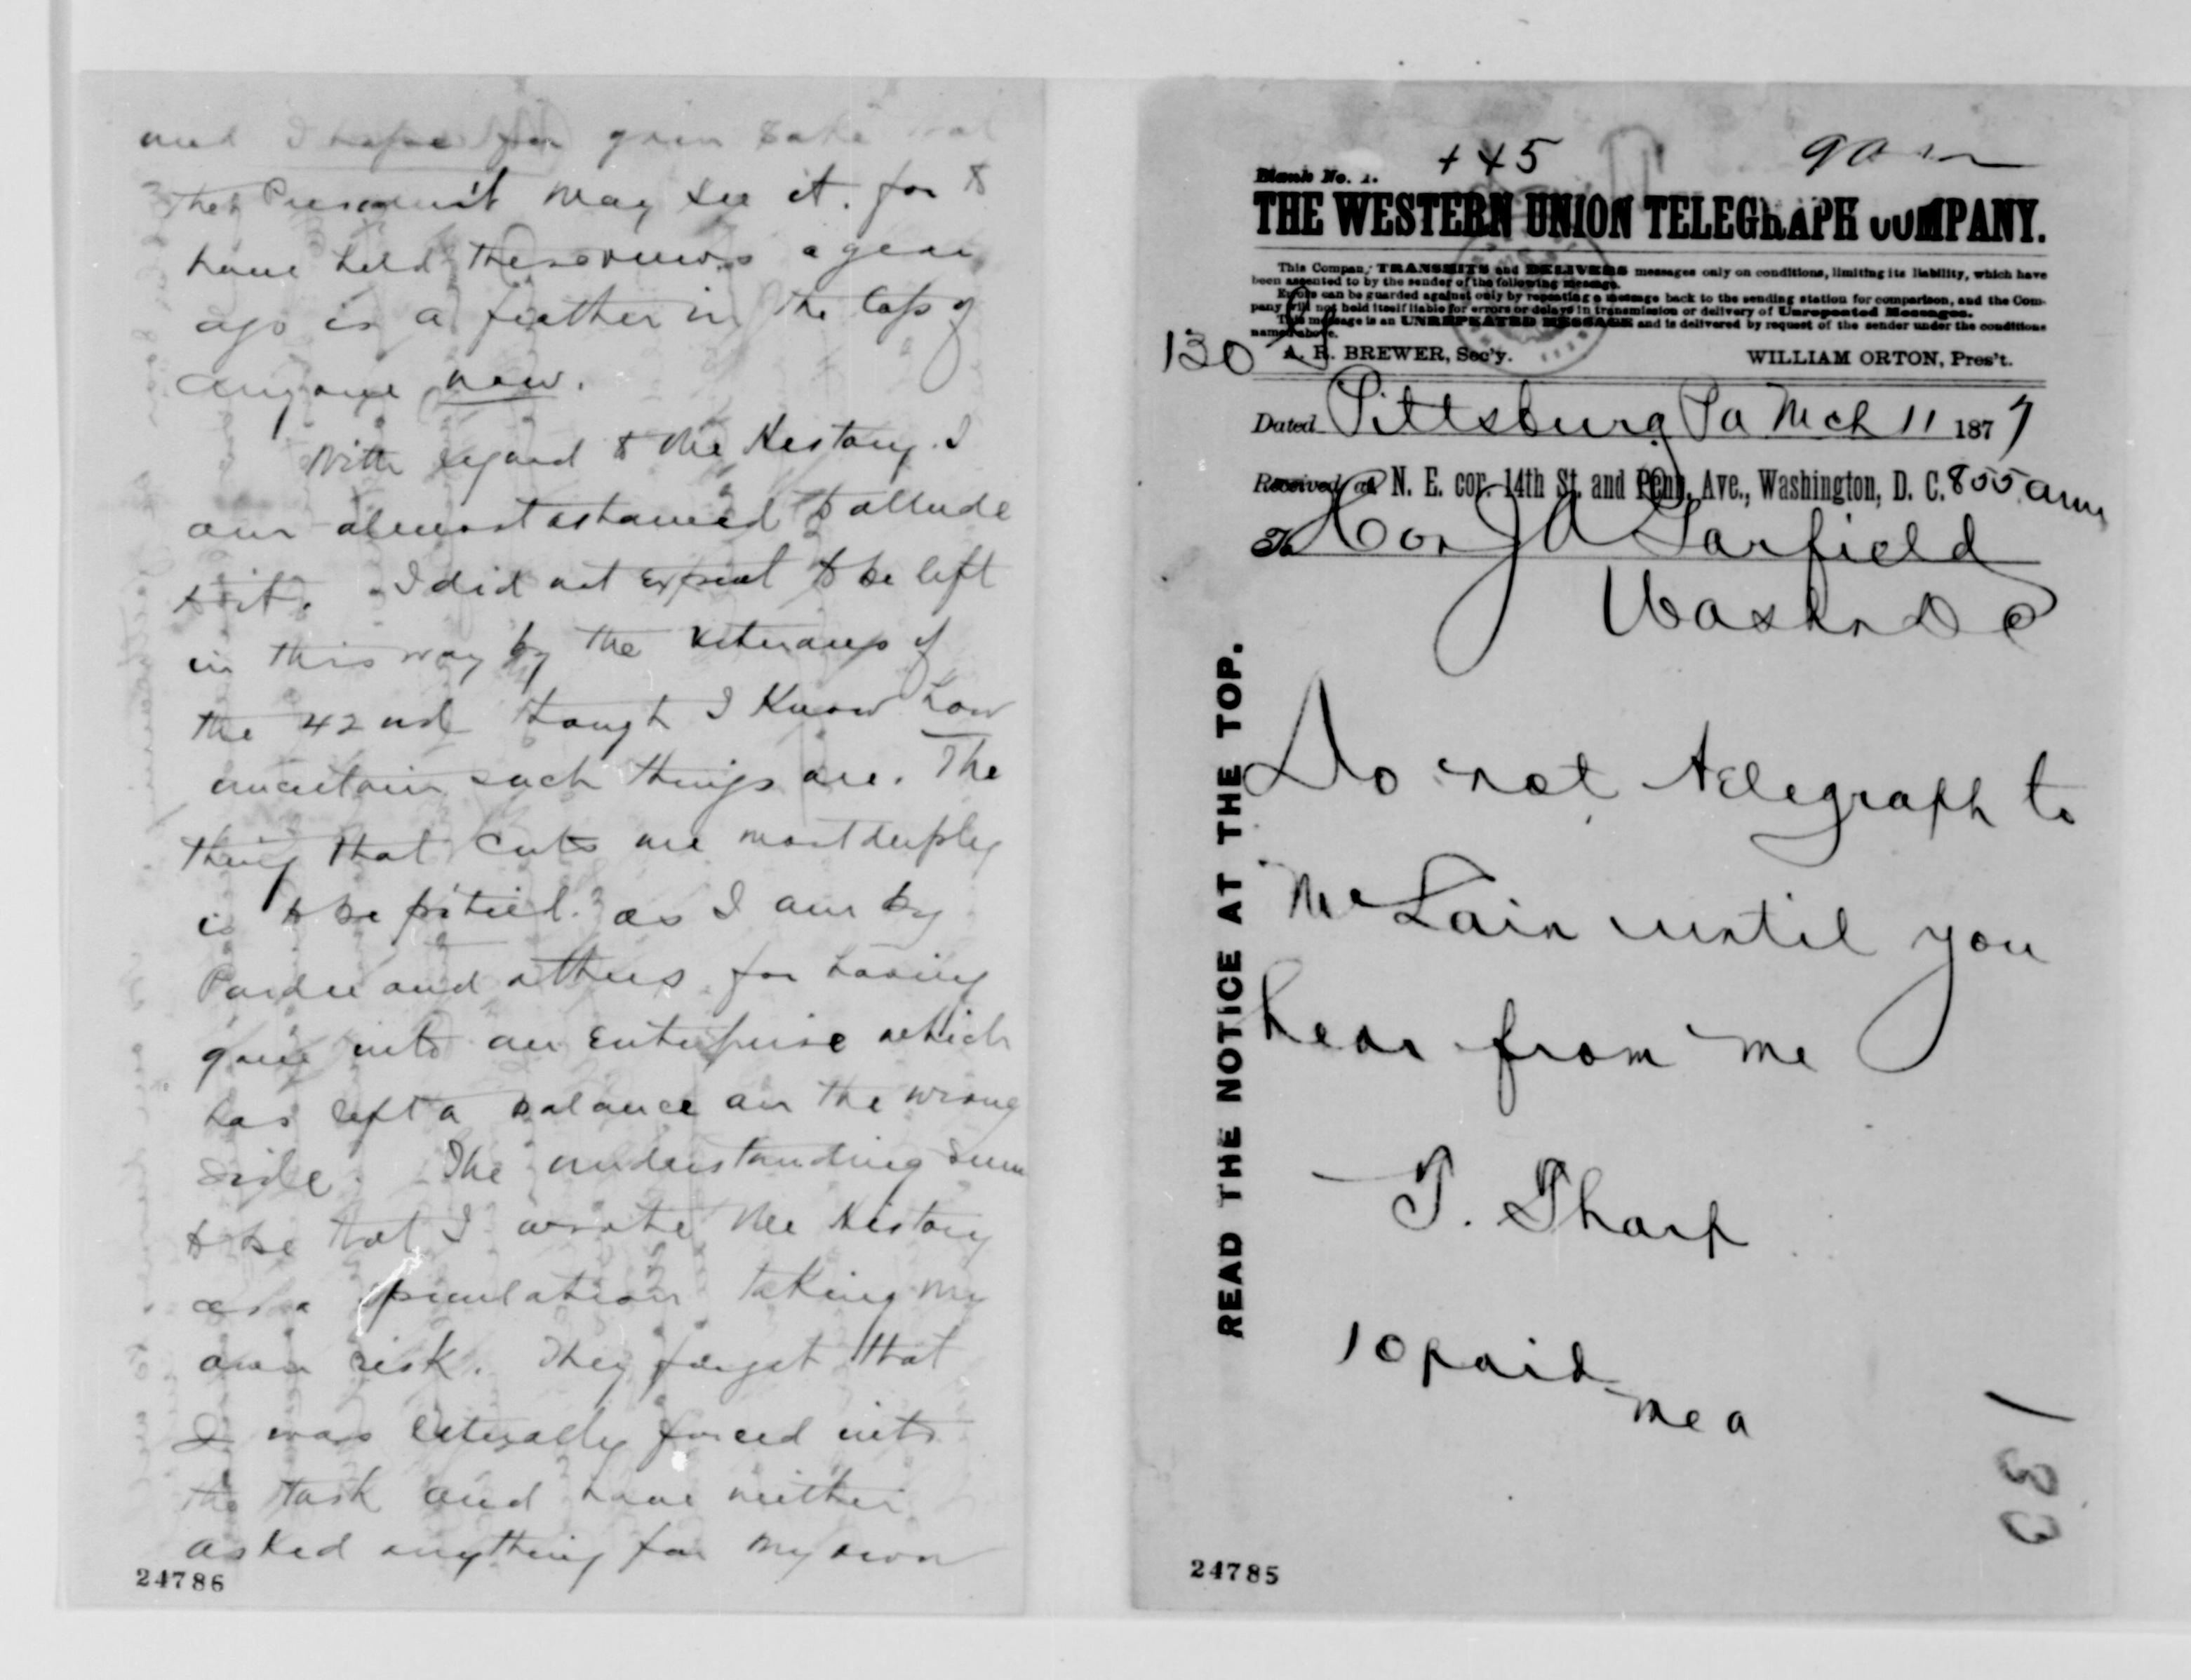 and I hope for your sake that
the President may see it. for to
have held these views a year
ago is a feather in the cap of
anyone now.
With regard to the History. I
am almost ashamed to allude
to it. I did not expect to be left
in this way by the veterans of
the 42nd though I know how
uncertain such things are. The
thing that cuts me most deeply
is to be pitied. as I am by
Pardee and others for having
gone into an enterprise which
has left a balance on the wrong
side. The understanding seems
to be that I wrote the History
as a speculation taking my
own risk. They forget that
I was literally forced into
the task and have neither
asked anything for my own
24786
445
Blank No. 1.
THE WESTERN UNION TELEGRAPH COMPANY.
This Company TRANSMITS and DELIVERS messages only on conditions, limiting its liability, which have
been assented to by the sender of the following message.
Errors can be guarded against only by repeating a message back to the sending station for comparison, and the Com-
pany will not hold itself liable for errors or delays in transmission or delivery of Unrepeated Messages.
This message is an UNREPEATED MESSAGE and is delivered by request of the sender under the conditions
named above.
130
A. R. BREWER, Sec'y.
WILLIAM ORTON, Pres't.
Dated Pittsburg Pa Mch 11 1877
Received at N. E. cor. 14th St. and Penn. Ave., Washington, D. C. 855 am
To Hon J A Garfield
Washn D C
Do not telegraph to
McLain until you
hear from me
T. Tharp
10 paid
READ THE NOTICE AT THE TOP.
130
24785